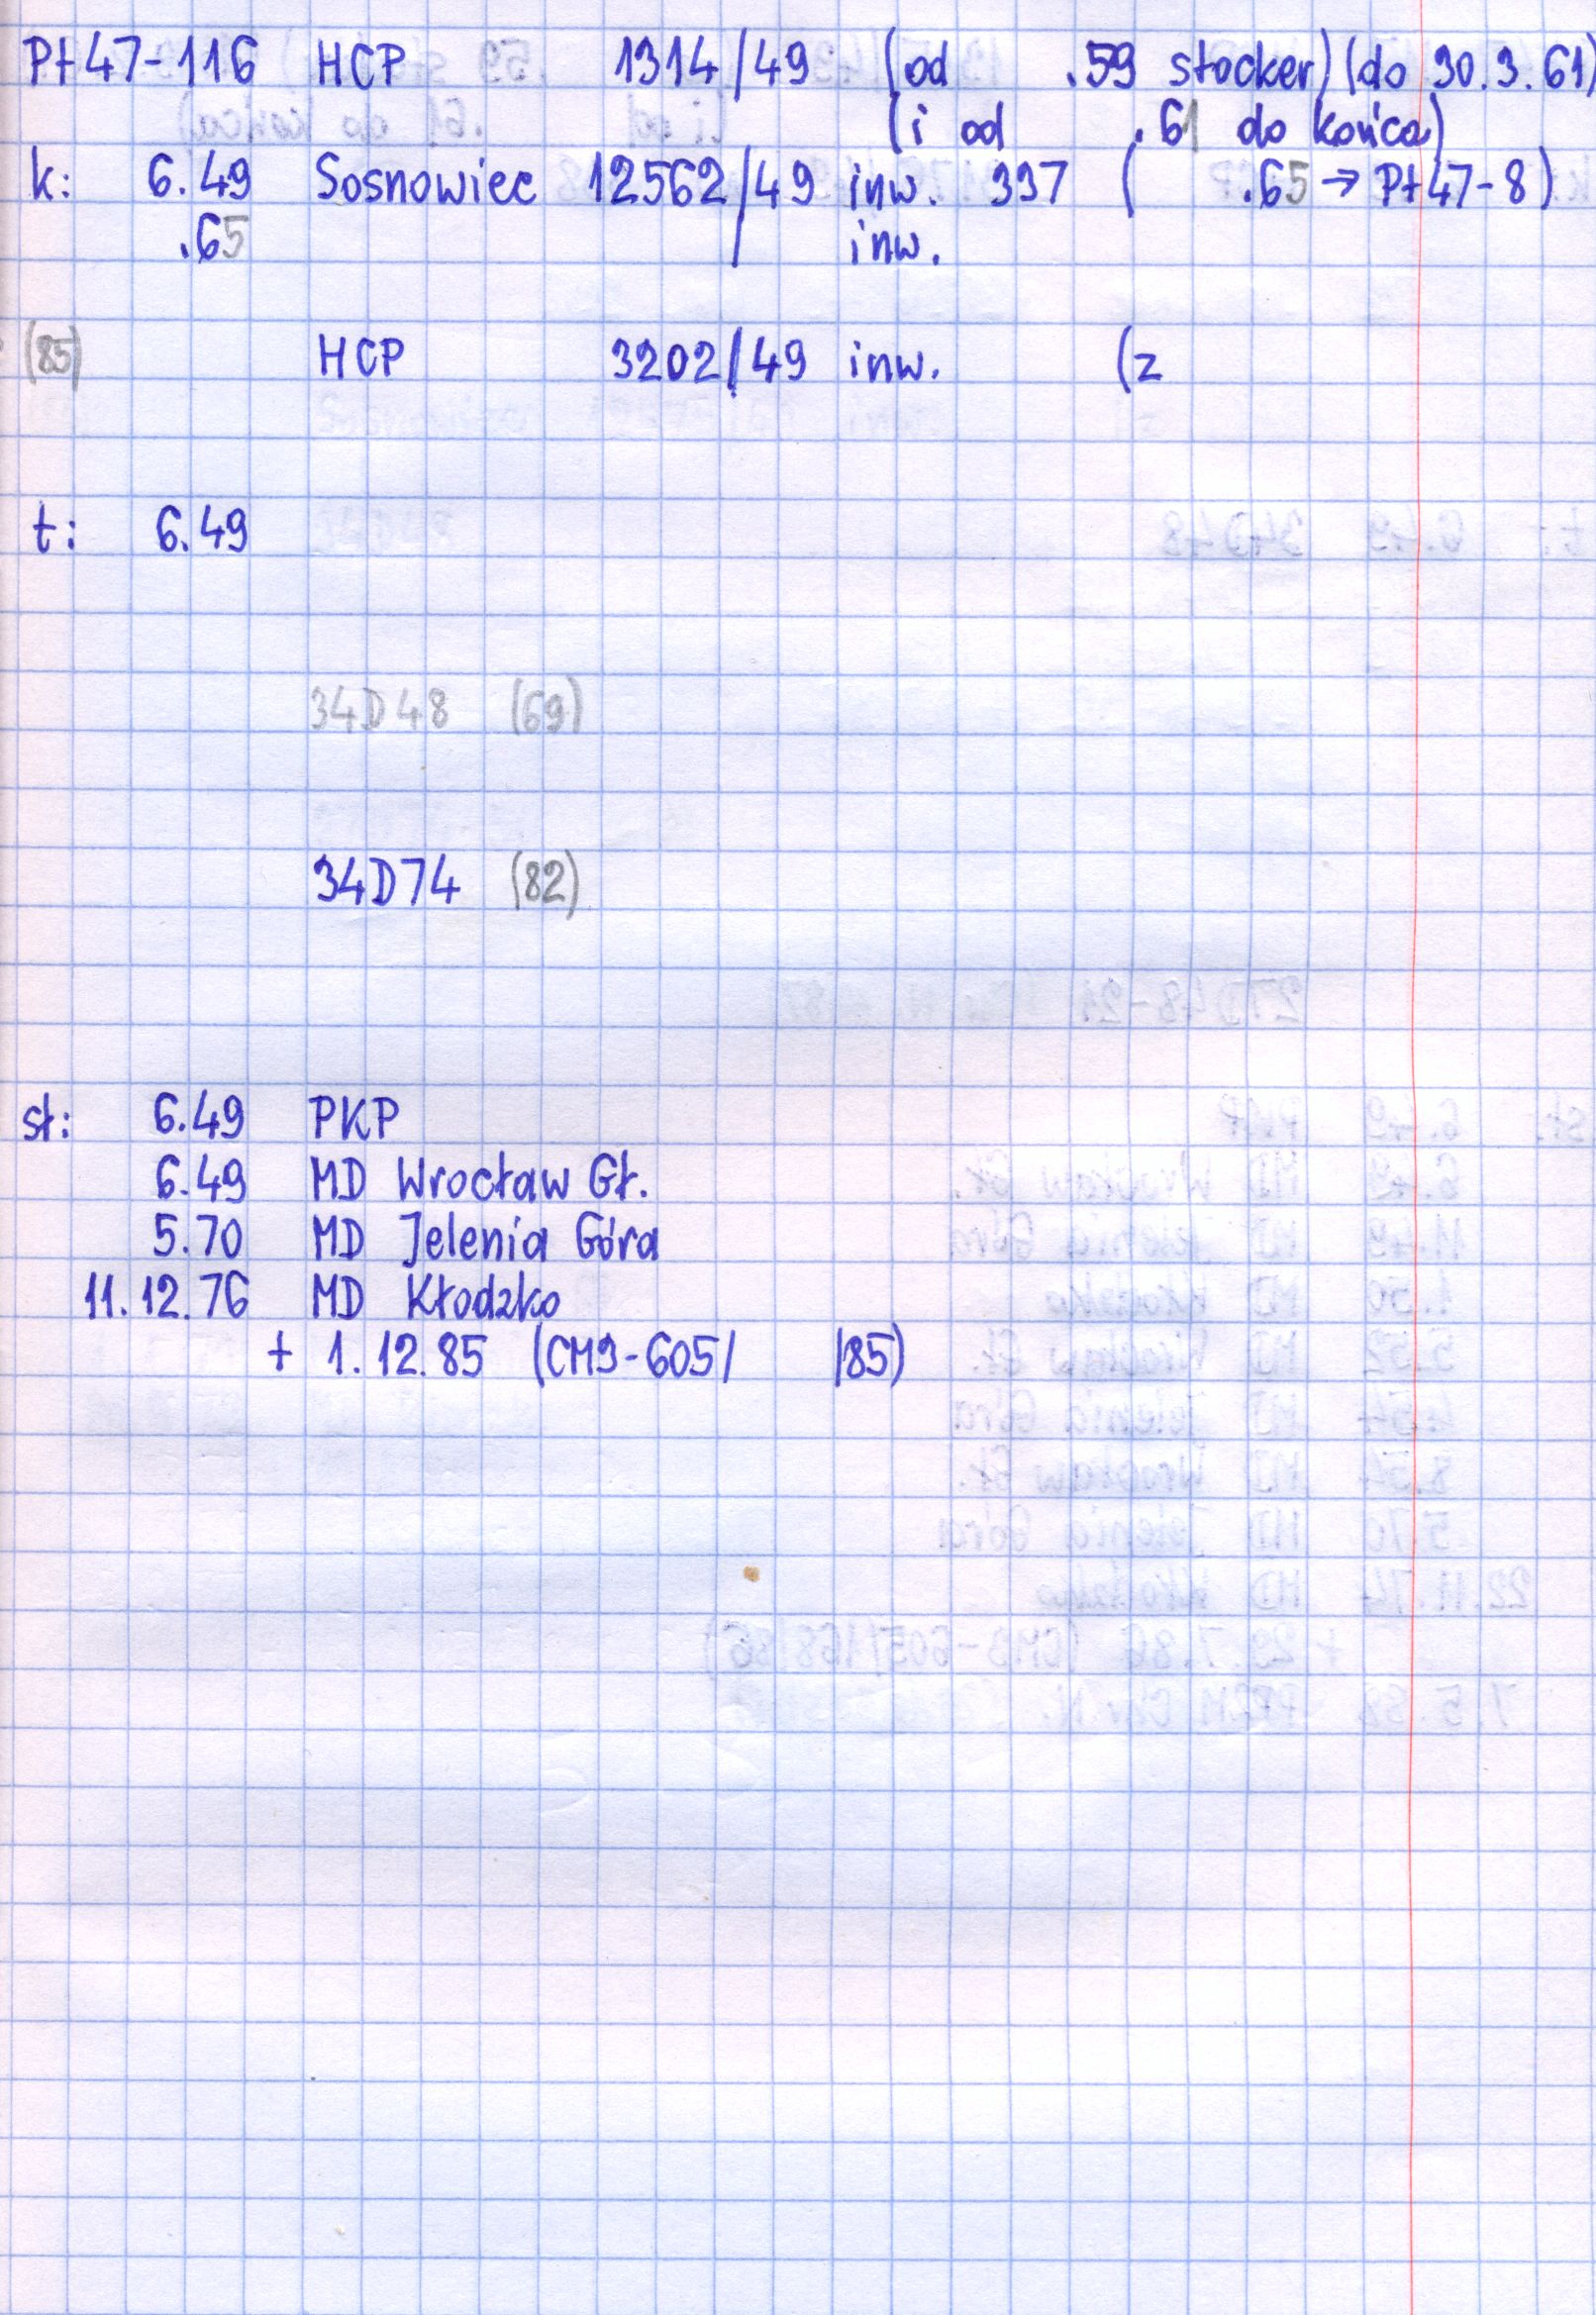 Pt47-116 HCP 1314/49 (od .59 stocker) (do 30.3.61)
(i od .61 do końca)
k: 6.49 Sosnowiec 12562/49 inw. 337 ( .65 → Pt47-8)
.65 / inw.
(85) HCP 3202/49 inw. (z
t: 6.49
34D48 (69)
34D74 (82)
st: 6.49 PKP
6.49 MD Wrocław Gł.
5.70 MD Jelenia Góra
11.12.76 MD Kłodzko
+ 1.12.85 (CM3-605/ /85)